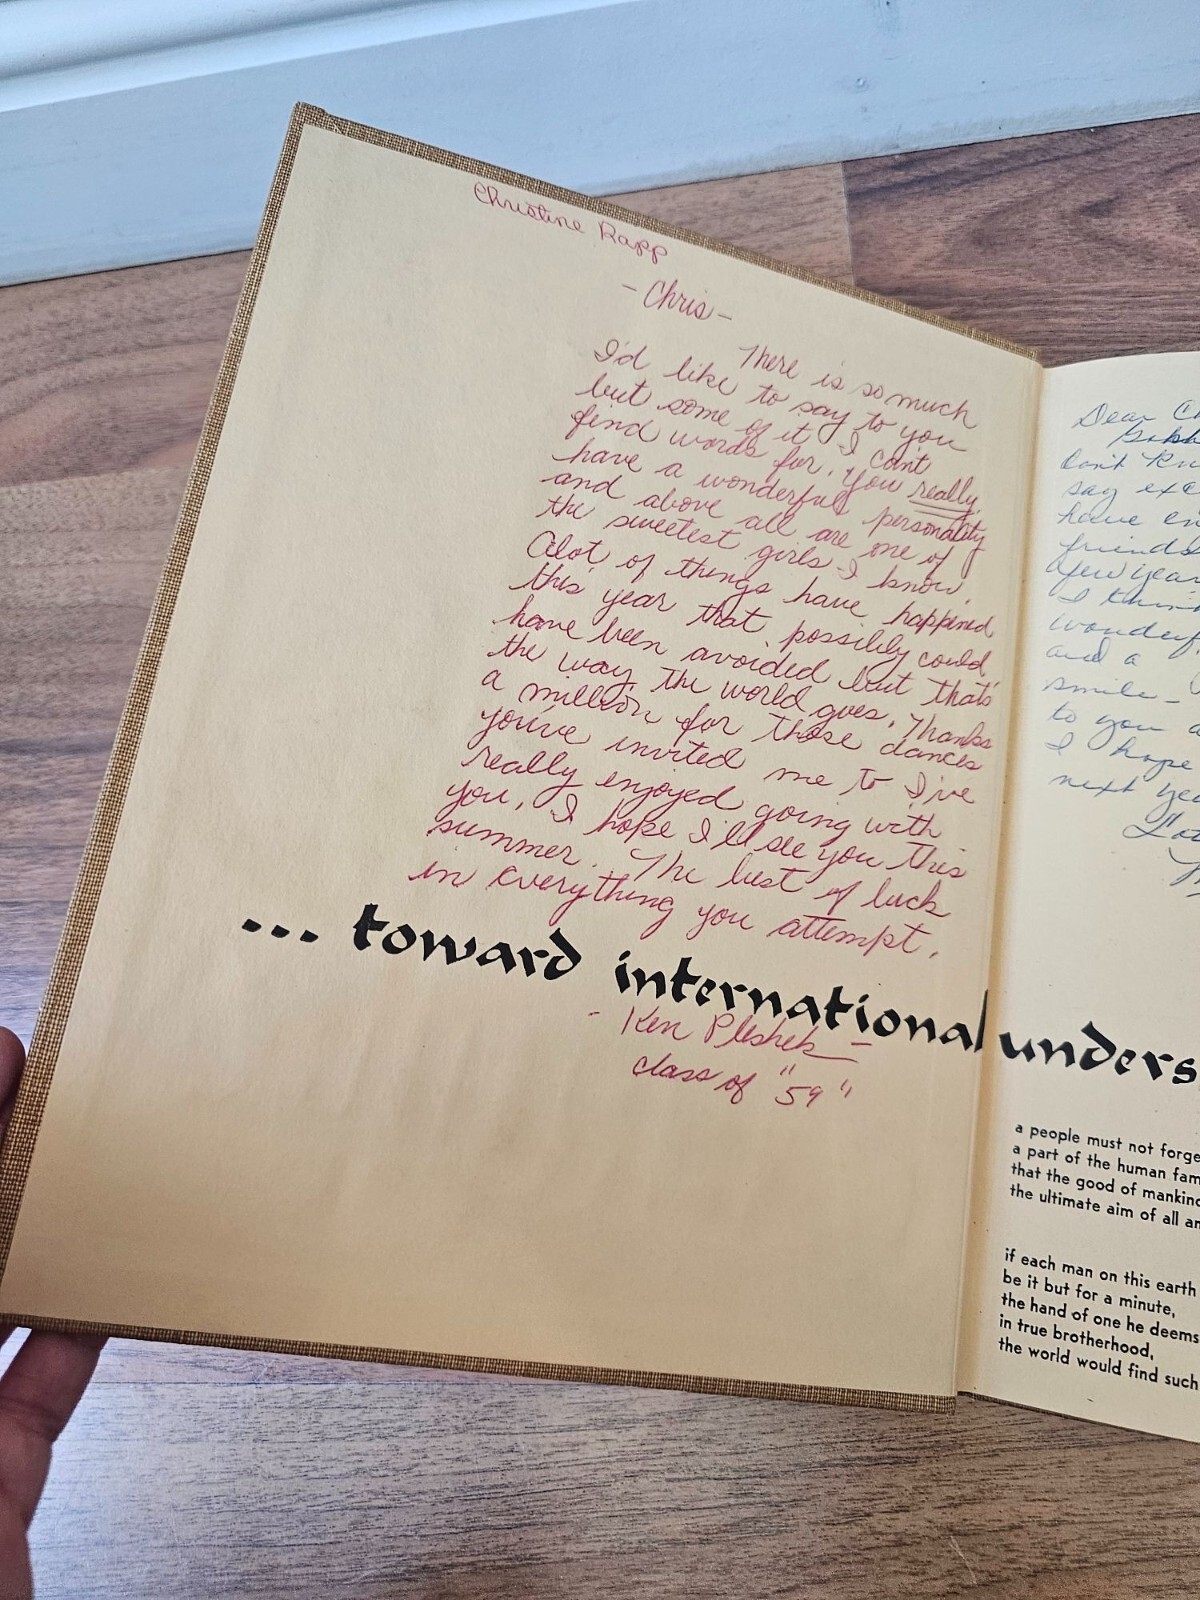 Christine Rapp
- Chris -
There is so much
I'd like to say to you
but some of it I can't
find words for. You really
have a wonderful personality
and above all are one of
the sweetest girls I know.
Alot of things have happened
this year that possibily could
have been avoided but that's
the way the world goes. Thanks
a million for those dances
you've invited me to I've
really enjoyed going with
you. I hope I'll see you this
summer. The best of luck
in everything you attempt.
... toward international unders
- Ken Pleshek -
class of "59"
Dear C
don't kn
say exc
have en
friends
few year
I think
wonderf
and a
smile -
to you a
I hope
next yea
a people must not forge
a part of the human fam
that the good of mankind
the ultimate aim of all an
if each man on this earth
be it but for a minute,
the hand of one he deems
in true brotherhood,
the world would find such